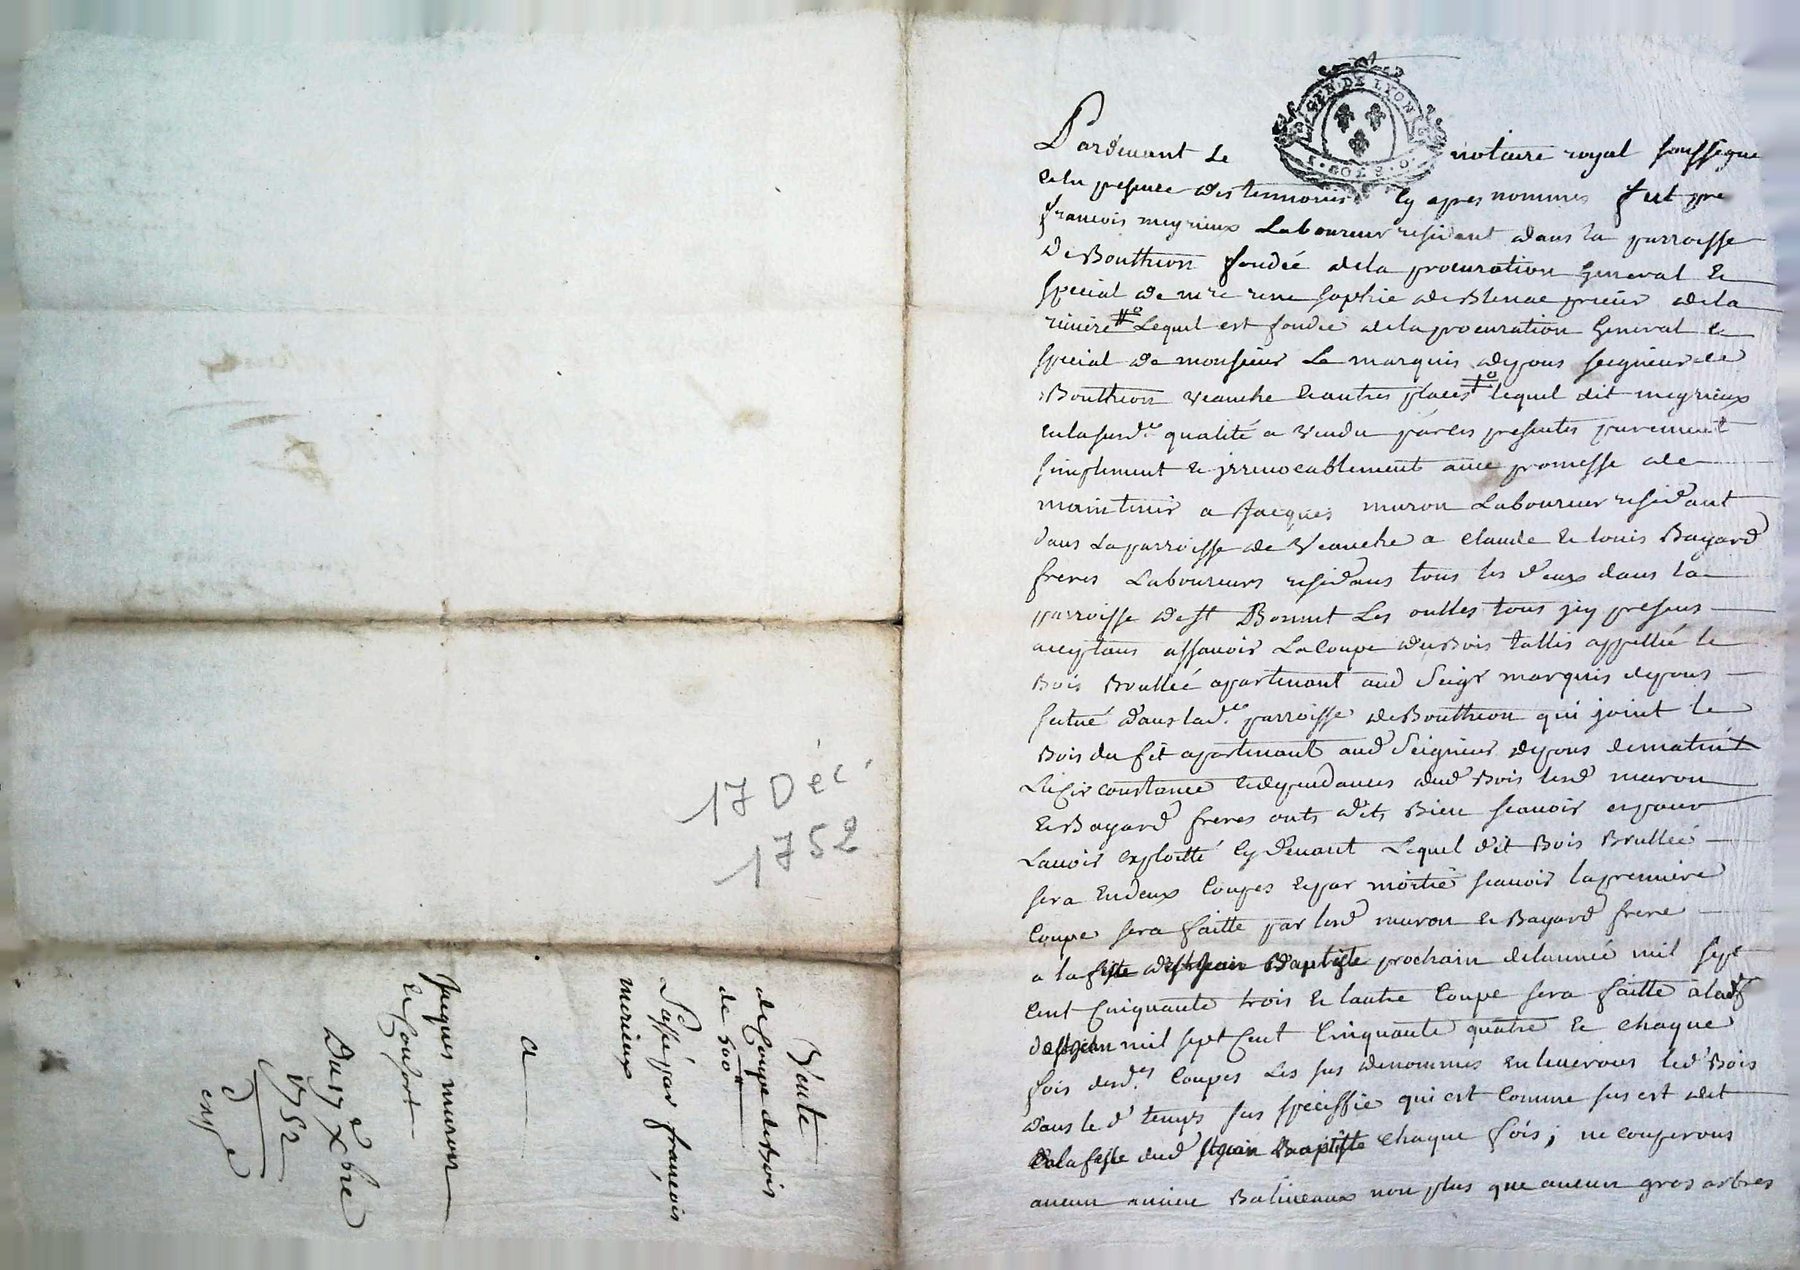 17 Déc.
1752
Vante
de Coupe de Bois
de 500
Passé par françois
merieux
a
Jacques muron
et Consort
Du 17e Xbre
1752
GEN. DE LYON
SOLS
Pardevant Le notaire royal soussigne
et en presence des temoins cy apres nommés fut pnt
françois meyrieux Laboureur resident dans la parroisse
De Bouthron fondée de la procuration General et
special de sophie de Blenac prieur de la
riviere Lequel est fondée de la procuration General et
special de monsieur Le marquis depons seigneur de
Bouthron veauche et autres places lequel dit meyrieux
en la susd.e qualité a vendu par ces presentes purement
simplement et irrevocablement avec promesse de
maintenir a Jacques muron Laboureur residant
dans La parroisse de Veauche a claude et louis Bayard
freres Laboureurs residans tous les deux dans la
parroisse de st Bonnet Les oulles tous icy presens
acceptans assavoir La Coupe du Bois tallis appellée le
Bois Brullée apartenant aud Seigr marquis depons
situé dans lad.e parroisse de Bouthron qui joint le
Bois du fit apartenant aud Seigneur depons
La Circonstance et dependances dud Bois lesd muron
et Bayard freres onts dits Bien scavoir et pour
Lavoir exploitté cy devant Lequel dit Bois Brullée
sera en deux Coupes et par moitié scavoir la premiere
Coupe sera faitte par lesd muron et Bayard frere
a la feste de st Jean Baptiste prochain de lannée mil sept
cent Cinquante trois et lautre Coupe sera faitte a lad f
de st Jean mil sept Cent Cinquante quatre et chaque
fois desd.es Coupes Les sus denommes enleverons led Bois
dans le d temps sus speciffie qui est Comme sus est dit
a la feste dud st Jean Baptiste chaque fois; ne couperons
aucun ancien Baliveaux non plus que aucun gros arbres